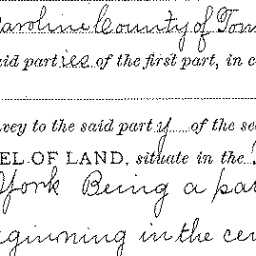 Caroline County of Tom
aid parties of the first part, in c
vey to the said party of the se
EL OF LAND, situate in the
York Being a pa
eginning in the cen